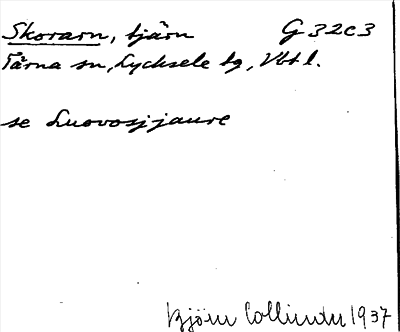 Skorarn, tjärn G 32c3
Tärna sn, Lycksele tg, Vbtl.
se Luovosjjaure
Björn Collinder 1937